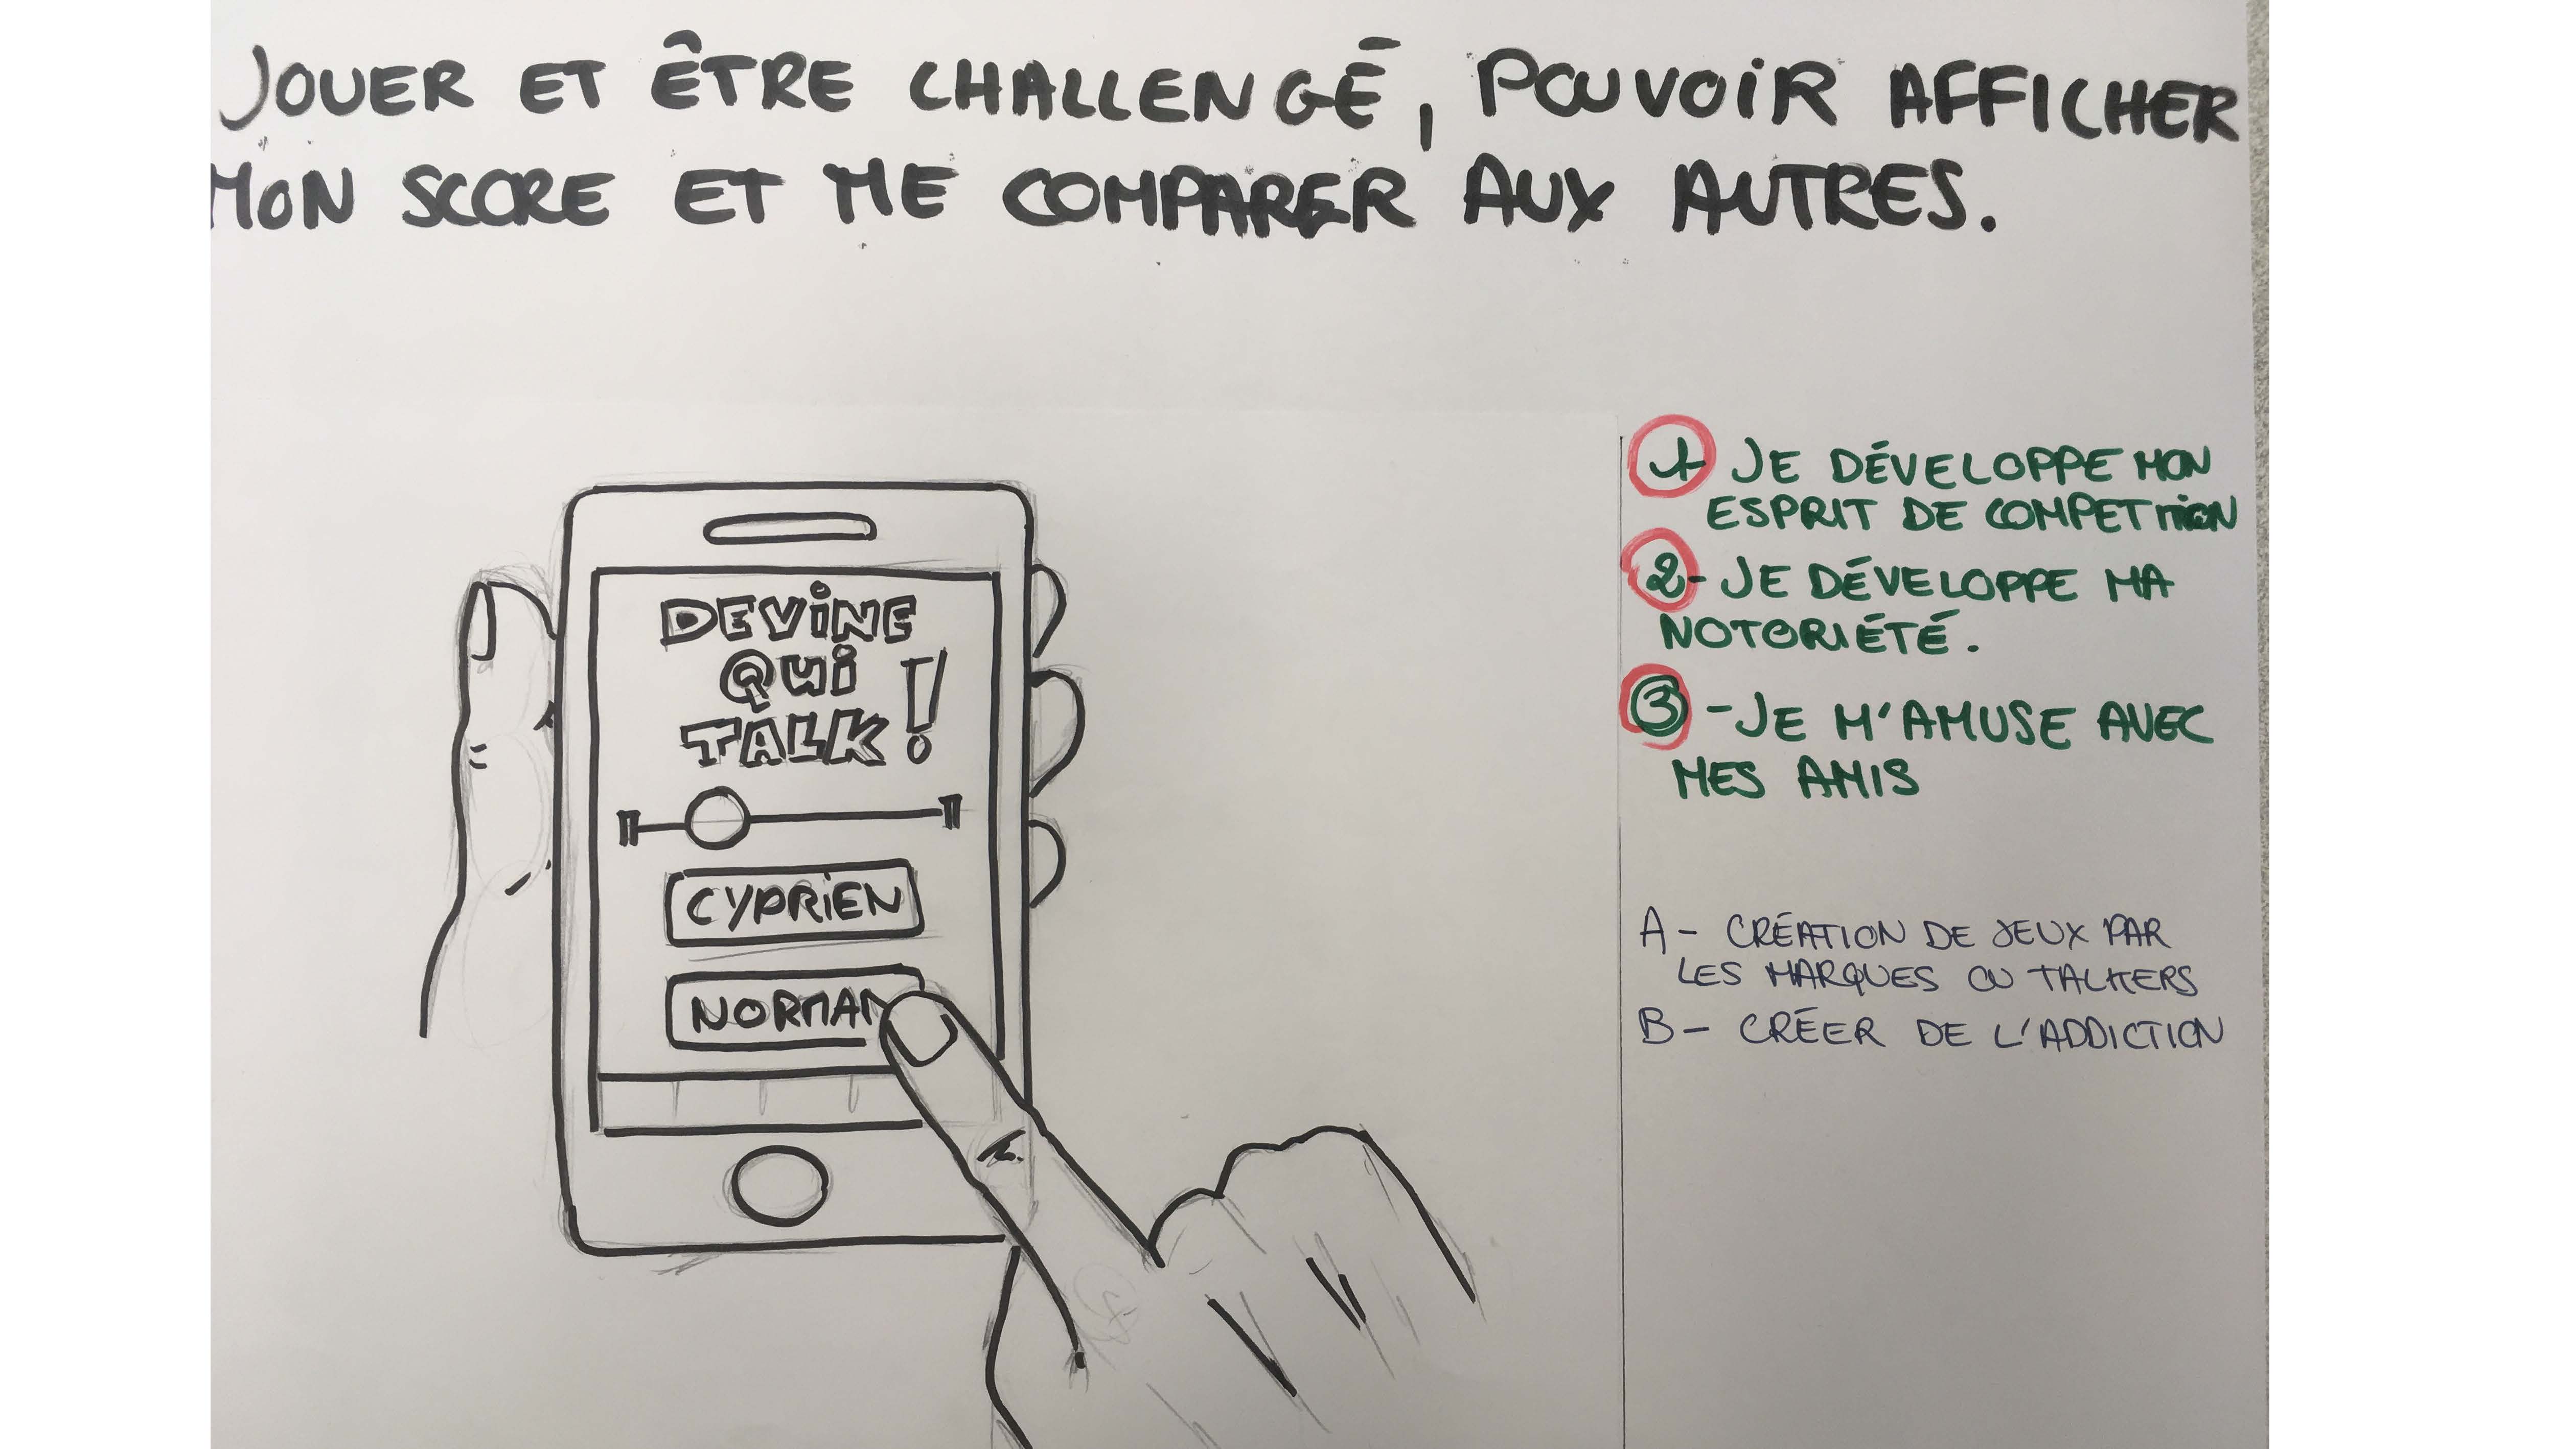 JOUER ET ÊTRE CHALLENGÉ, POUVOIR AFFICHER
MON SCORE ET ME COMPARER AUX AUTRES.
DEVINE
QUI
TALK !
CYPRIEN
NORMAN
1 JE DÉVELOPPE MON
ESPRIT DE COMPETITION
2- JE DÉVELOPPE MA
NOTORIÉTÉ.
3 - JE M'AMUSE AVEC
MES AMIS
A - CRÉATION DE JEUX PAR
LES MARQUES OU TALKERS
B - CRÉER DE L'ADDICTION